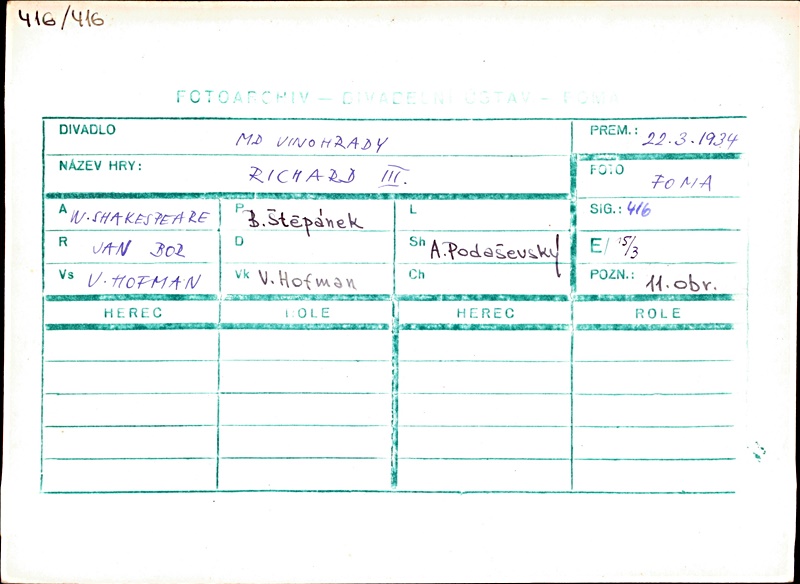 416/416
FOTOARCHIV – DIVADELNÍ ÚSTAV – FOMA
DIVADLO MD VINOHRADY PREM.: 22.3.1934
NÁZEV HRY: RICHARD III. FOTO FOMA
A W.SHAKESPEARE P B.Štěpánek L SIG.: 416
R JAN BOR D Sh A.Podaševský E/ 15/3
Vs V.HOFMAN Vk V.Hofman Ch POZN.: 11.obr.
HEREC ROLE HEREC ROLE